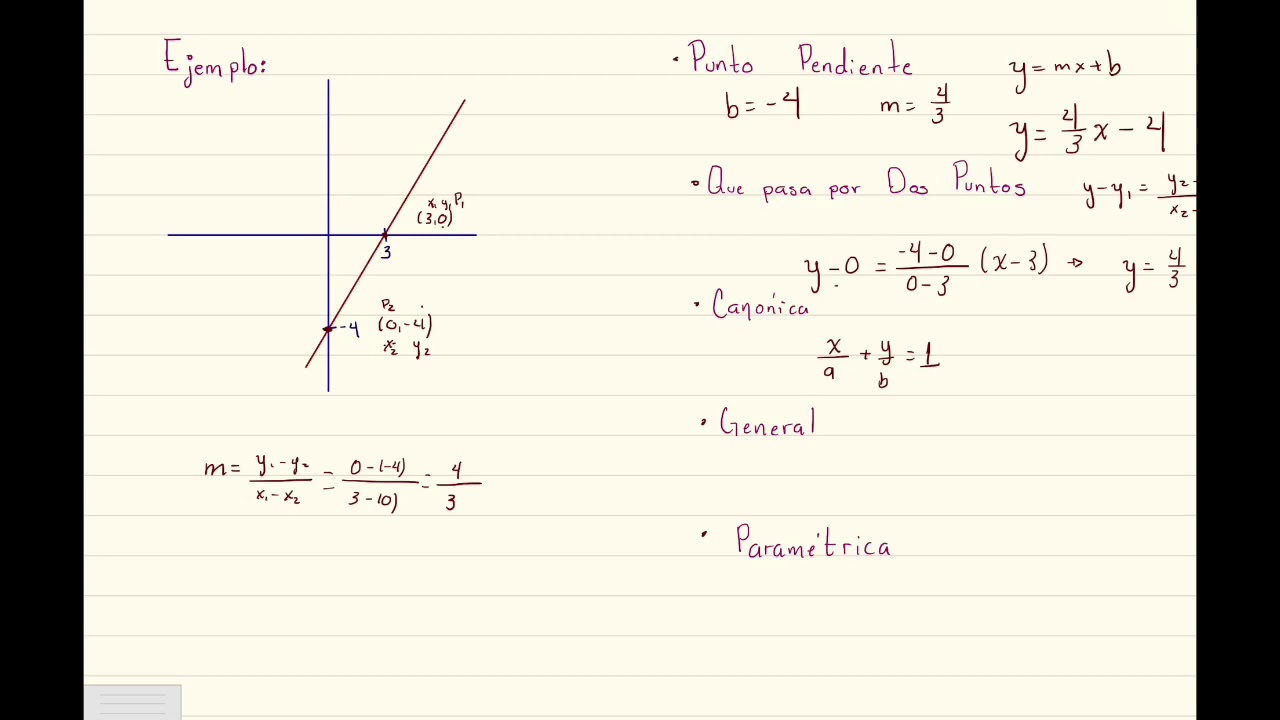 Ejemplo:
x₁ y₁ P₁
(3,0)
3
P₂
-4 (0,-4)
x₂ y₂
m = y₁ - y₂ / x₁ - x₂ = 0 - (-4) / 3 - (0) = 4 / 3
• Punto Pendiente y = mx + b
b = -4 m = 4/3
y = 4/3 x - 4
• Que pasa por Dos Puntos y - y₁ = y₂ - / x₂ -
y - 0 = -4 - 0 / 0 - 3 (x - 3) → y = 4/3
• Canónica
x/a + y/b = 1
• General
• Paramétrica